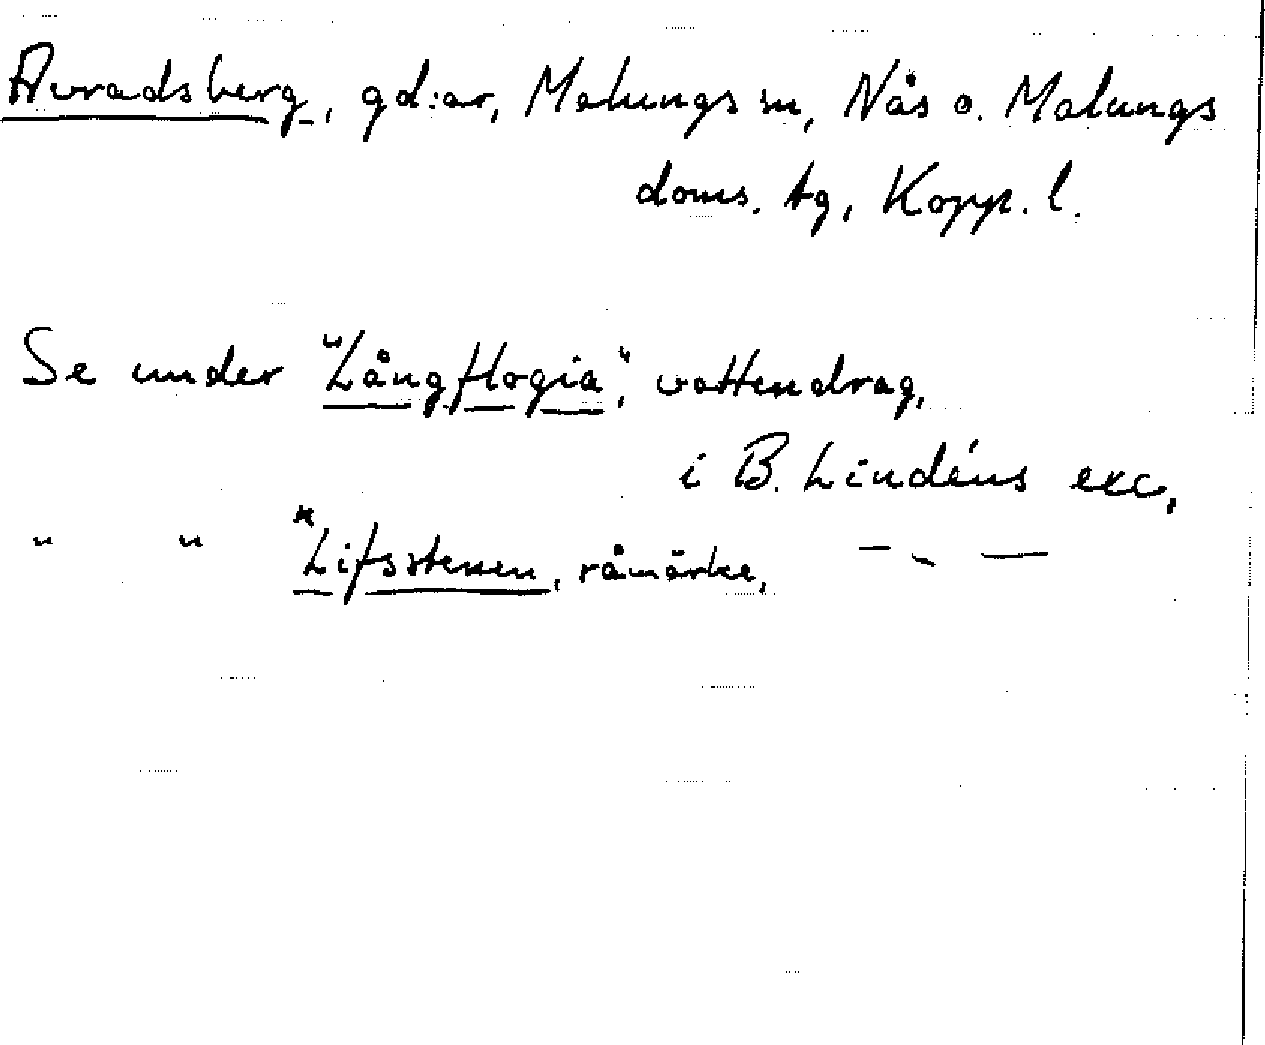 Avradsberg, gd:ar, Malungs sn, Nås o. Malungs
doms. tg, Kopp. l.
Se under "Långflogia", vattendrag,
i B. Lindéns exc,
" " *Lifsstenen, råmärke, — " —